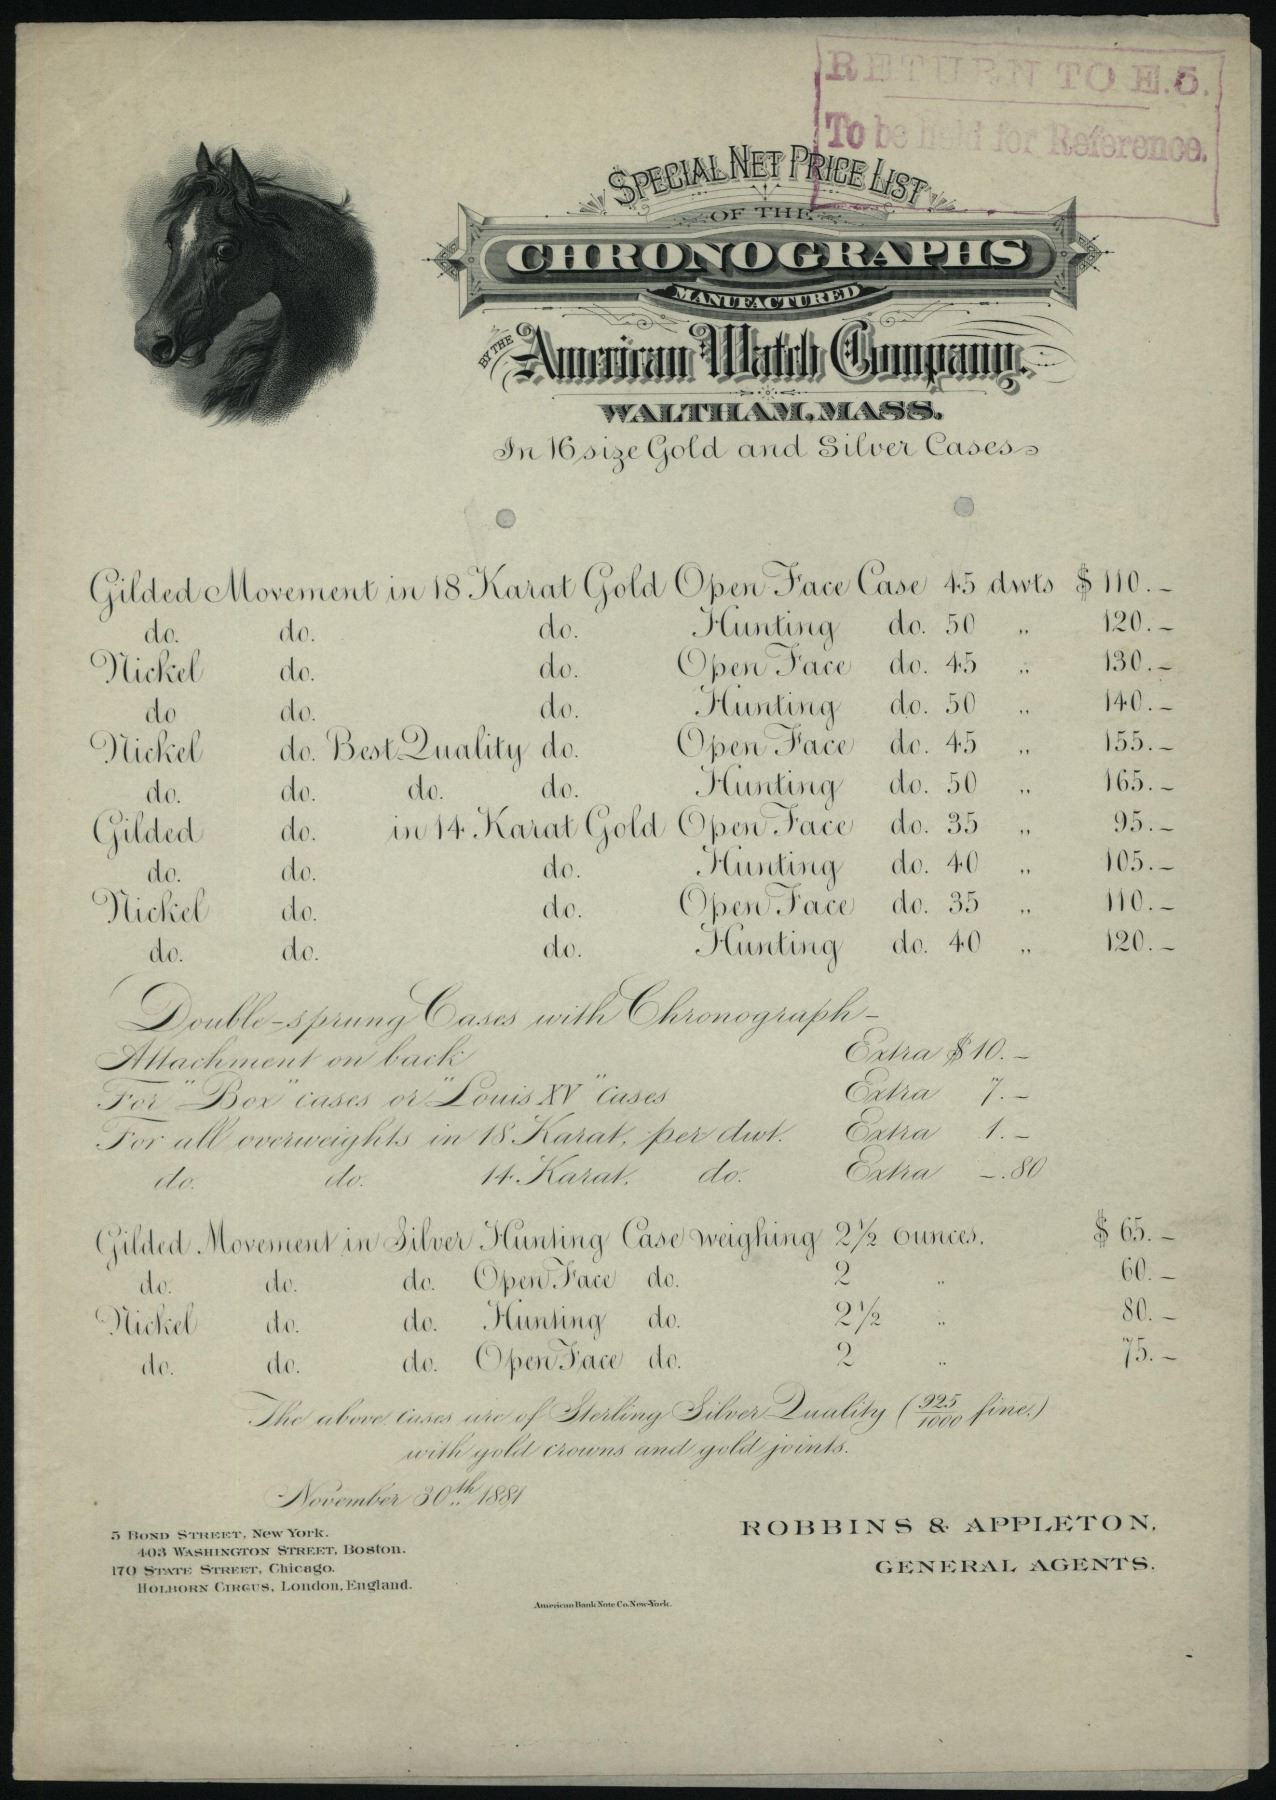 RETURN TO E.5.
To be held for Reference.
SPECIAL NET PRICE LIST
OF THE
CHRONOGRAPHS
MANUFACTURED
BY THE American Watch Company.
WALTHAM, MASS.
In 16 size Gold and Silver Cases
Gilded Movement in 18 Karat Gold Open Face Case 45 dwts $110.–
do. do. do. Hunting do. 50 „ 120.–
Nickel do. do. Open Face do. 45 „ 130.–
do do. do. Hunting do. 50 „ 140.–
Nickel do. Best Quality do. Open Face do. 45 „ 155.–
do. do. do. do. Hunting do. 50 „ 165.–
Gilded do. in 14 Karat Gold Open Face do. 35 „ 95.–
do. do. do. Hunting do. 40 „ 105.–
Nickel do. do. Open Face do. 35 „ 110.–
do. do. do. Hunting do. 40 „ 120.–
Double-sprung Cases with Chronograph-
Attachment on back Extra $10.–
For "Box" cases or "Louis XV" cases Extra 7.–
For all overweights in 18 Karat, per dwt. Extra 1.–
do. do. 14 Karat, do. Extra –.80
Gilded Movement in Silver Hunting Case weighing 2½ ounces. $65.–
do. do. do. Open Face do. 2 „ 60.–
Nickel do. do. Hunting do. 2½ „ 80.–
do. do. do. Open Face do. 2 „ 75.–
The above cases are of Sterling Silver Quality (925/1000 fine.)
with gold crowns and gold joints.
November 30th 1881
5 BOND STREET, New York.
403 WASHINGTON STREET, Boston.
170 STATE STREET, Chicago.
HOLBORN CIRCUS, London, England.
ROBBINS & APPLETON,
GENERAL AGENTS.
American Bank Note Co. New-York.